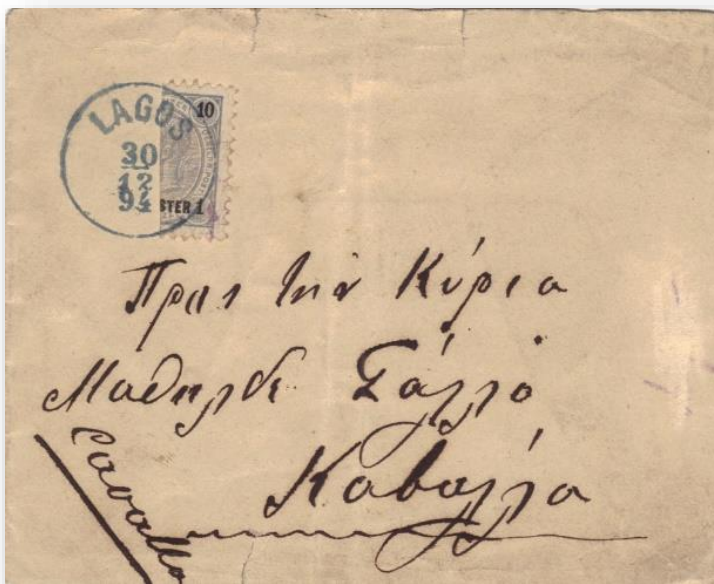 LAGOS
30
12
94
10
STER 1
Προς την Κύρια
Μαθηλδε Γάλλο
Καβάλλα
Cavalla